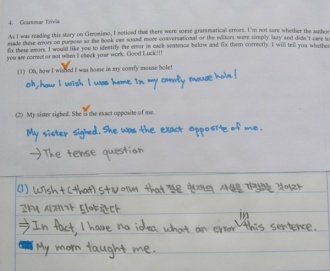 4. Grammar Trivia
As I was reading this story on Geronimo, I noticed that there were some grammatical errors. I'm not sure whether the author
made these errors on purpose so the book can sound more conversational or the editors were simply lazy and didn't care to
fix these errors. I would like you to identify the error in each sentence below and fix them correctly. I will tell you whether
you are correct or not when I check your work. Good Luck!!!
(1) Oh, how I wished I was home in my comfy mouse hole!
oh, how I wish I was home in my comfy mouse hole!
(2) My sister sighed. She is the exact opposite of me.
My sister sighed. She was the exact opposite of me.
→ The tense question
(1) Wish + (that) s+v 에서 that 절은 현재의 사실을
과거 시제가 되어야 한다
⇒ In fact, I have no idea what an error in this sentence.
My mom taught me.